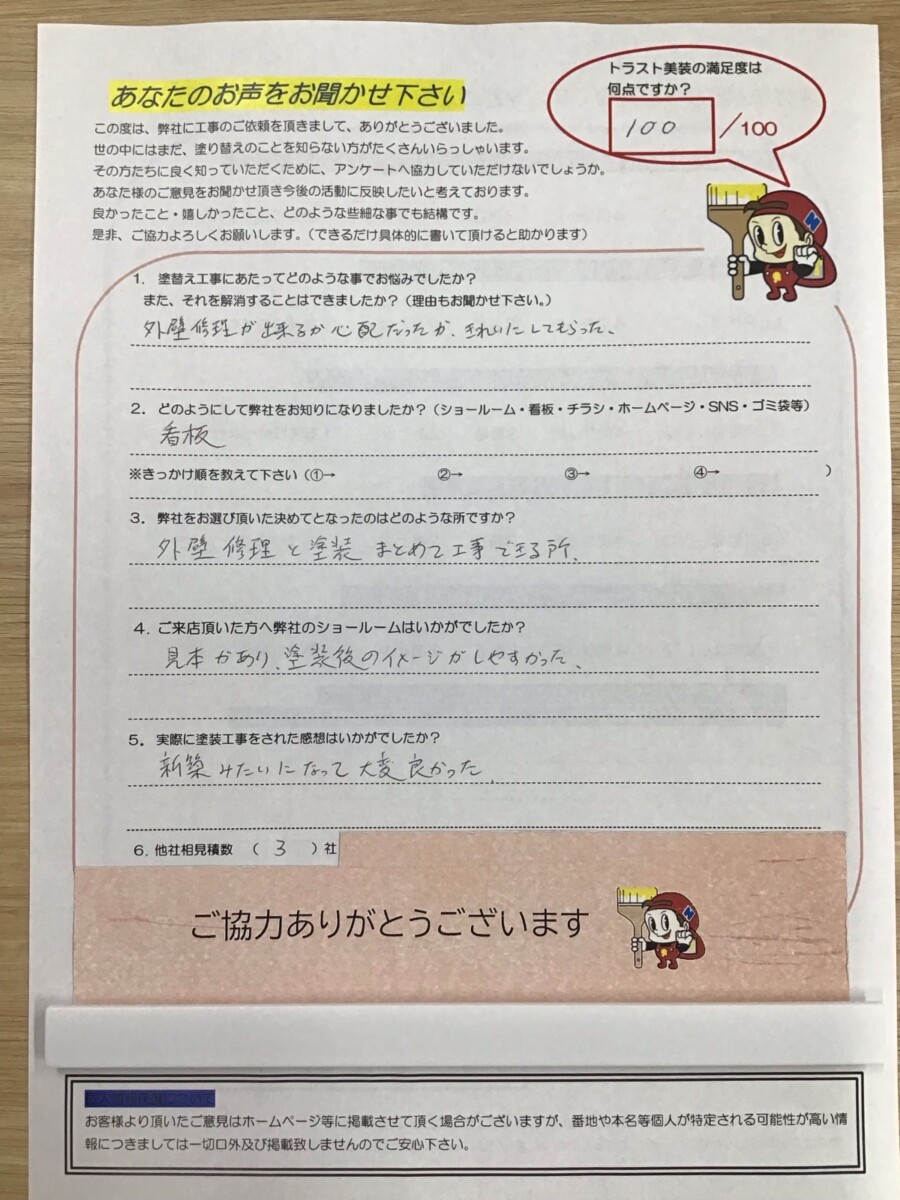 あなたのお声をお聞かせ下さい
トラスト美装の満足度は
何点ですか？
100 ／100
この度は、弊社に工事のご依頼を頂きまして、ありがとうございました。
世の中にはまだ、塗り替えのことを知らない方がたくさんいらっしゃいます。
その方たちに良く知っていただくために、アンケートへ協力していただけないでしょうか。
あなた様のご意見をお聞かせ頂き今後の活動に反映したいと考えております。
良かったこと・嬉しかったこと、どのような些細な事でも結構です。
是非、ご協力よろしくお願いします。（できるだけ具体的に書いて頂けると助かります）
N
1. 塗替え工事にあたってどのような事でお悩みでしたか？
また、それを解消することはできましたか？（理由もお聞かせ下さい。）
外壁修理が出来るか心配だったが、きれいにしてもらった、
2. どのようにして弊社をお知りになりましたか？（ショールーム・看板・チラシ・ホームページ・SNS・ゴミ袋等）
看板
※きっかけ順を教えて下さい（①→ ②→ ③→ ④→ ）
3. 弊社をお選び頂いた決めてとなったのはどのような所ですか？
外壁修理と塗装まとめて工事できる所、
4. ご来店頂いた方へ弊社のショールームはいかがでしたか？
見本があり、塗装後のイメージがしやすかった、
5. 実際に塗装工事をされた感想はいかがでしたか？
新築みたいになって大変良かった、
6. 他社相見積数 （ 3 ）社
ご協力ありがとうございます
N
お客様より頂いたご意見はホームページ等に掲載させて頂く場合がございますが、番地や本名等個人が特定される可能性が高い情
報につきましては一切口外及び掲載致しませんのでご安心下さい。